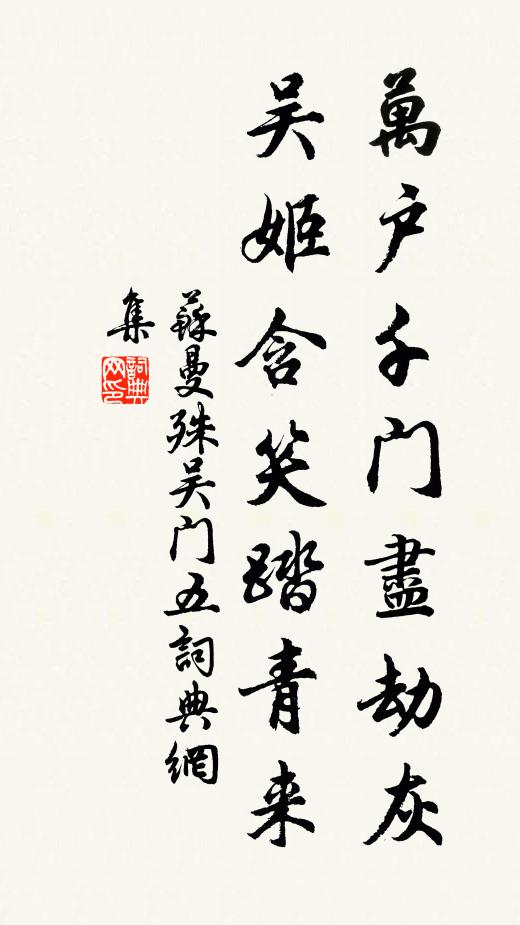 萬户千门盡劫灰
吴姬含笑踏青来
蘇曼殊吴门五詞典網
集
詞典
网印